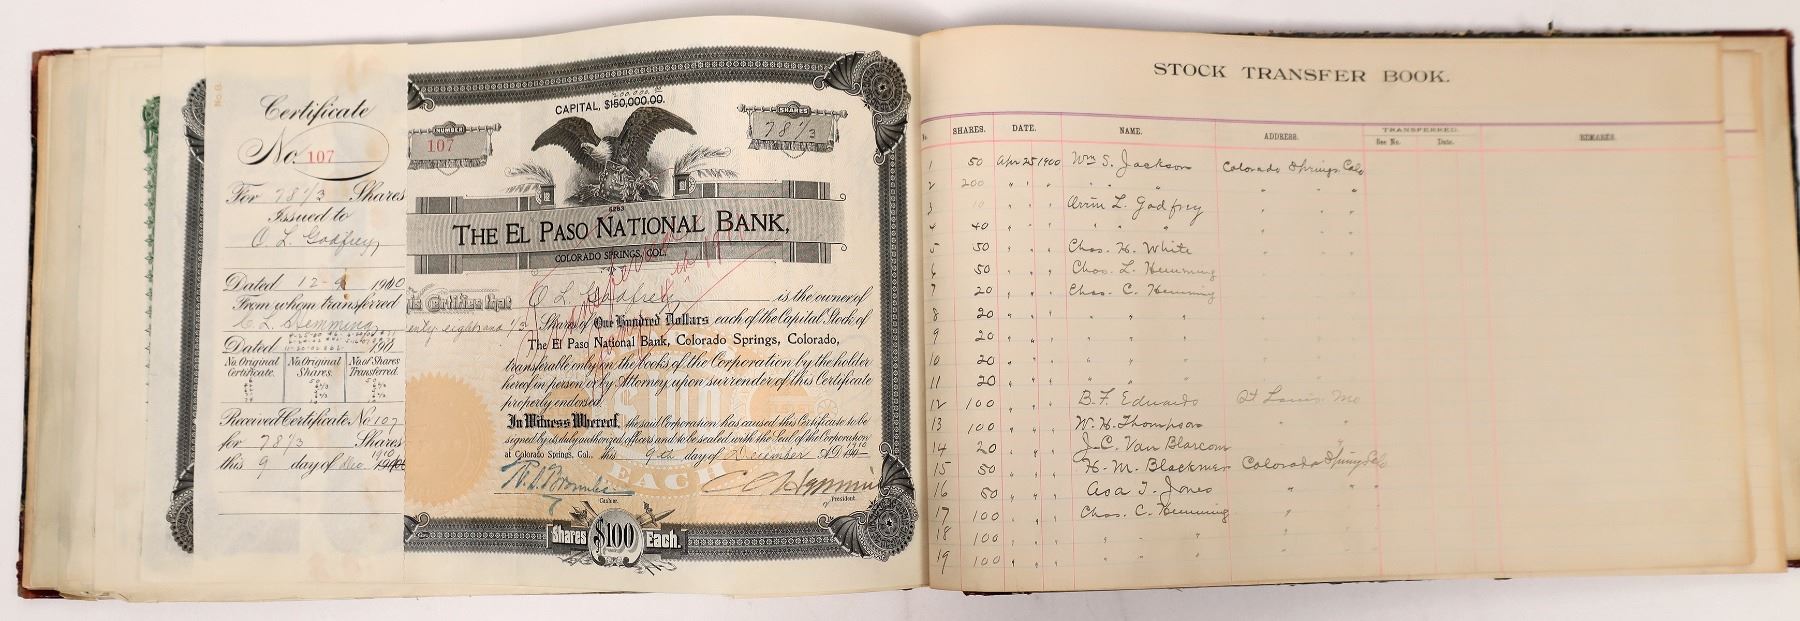 No. G.
Certificate
No. 107
For 78 1/3 Shares
Issued to
O. L. Godfrey,
Dated 12-9 1910
From whom transferred
C. L. Hemming,
Dated 191
No. Original Certificate. No. Original Shares. No. of Shares Transferred.
Received Certificate No. 107
for 78 1/3 Shares
this 9 day of Dec. 1910
200,000.00
CAPITAL, $150,000.00.
NUMBER
107
SHARES
78 1/3
4263
THE EL PASO NATIONAL BANK,
COLORADO SPRINGS, COL.
This Certifies that O L Godfrey is the owner of
enty eight and 1/3 Shares of One Hundred Dollars each of the Capital Stock of
The El Paso National Bank, Colorado Springs, Colorado,
transferable only on the books of the Corporation by the holder
hereof in person or by Attorney, upon surrender of this Certificate
properly endorsed.
In Witness Whereof, the said Corporation has caused this Certificate to be
signed by its duly authorized officers and to be sealed with the Seal of the Corporation
at Colorado Springs, Col. this 9th day of December A.D. 1910
$100
EACH
Cashier. President.
Shares $100 Each.
STOCK TRANSFER BOOK.
No. SHARES. DATE. NAME. ADDRESS. TRANSFERRED. REMARKS.
See No. Date.
1 50 Apr 25 1900 Wm S. Jackson Colorado Springs Colo
2 200 " " " " " " " " "
3 10 " " " Orrin L. Godfrey " " "
4 40 " " " " " " " " "
5 50 " " " Chas. H. White " " "
6 50 " " " Chas. L. Hemming " " "
7 20 " " " Chas. C. Hemming " " "
8 20 " " " " " " " " "
9 20 " " " " " " " " "
10 20 " " " " " " " " "
11 20 " " " " " " " " "
12 100 " " " B. F. Edwards St Louis Mo
13 100 " " " W. H. Thompson " "
14 20 " " " J. C. Van Blarcom " "
15 50 " " " H. M. Blackmer Colorado Springs Colo
16 50 " " " Asa T. Jones " " "
17 100 " " " Chas. C. Hemming " "
18 100 " " " " " " " "
19 100 " " " " " " " "